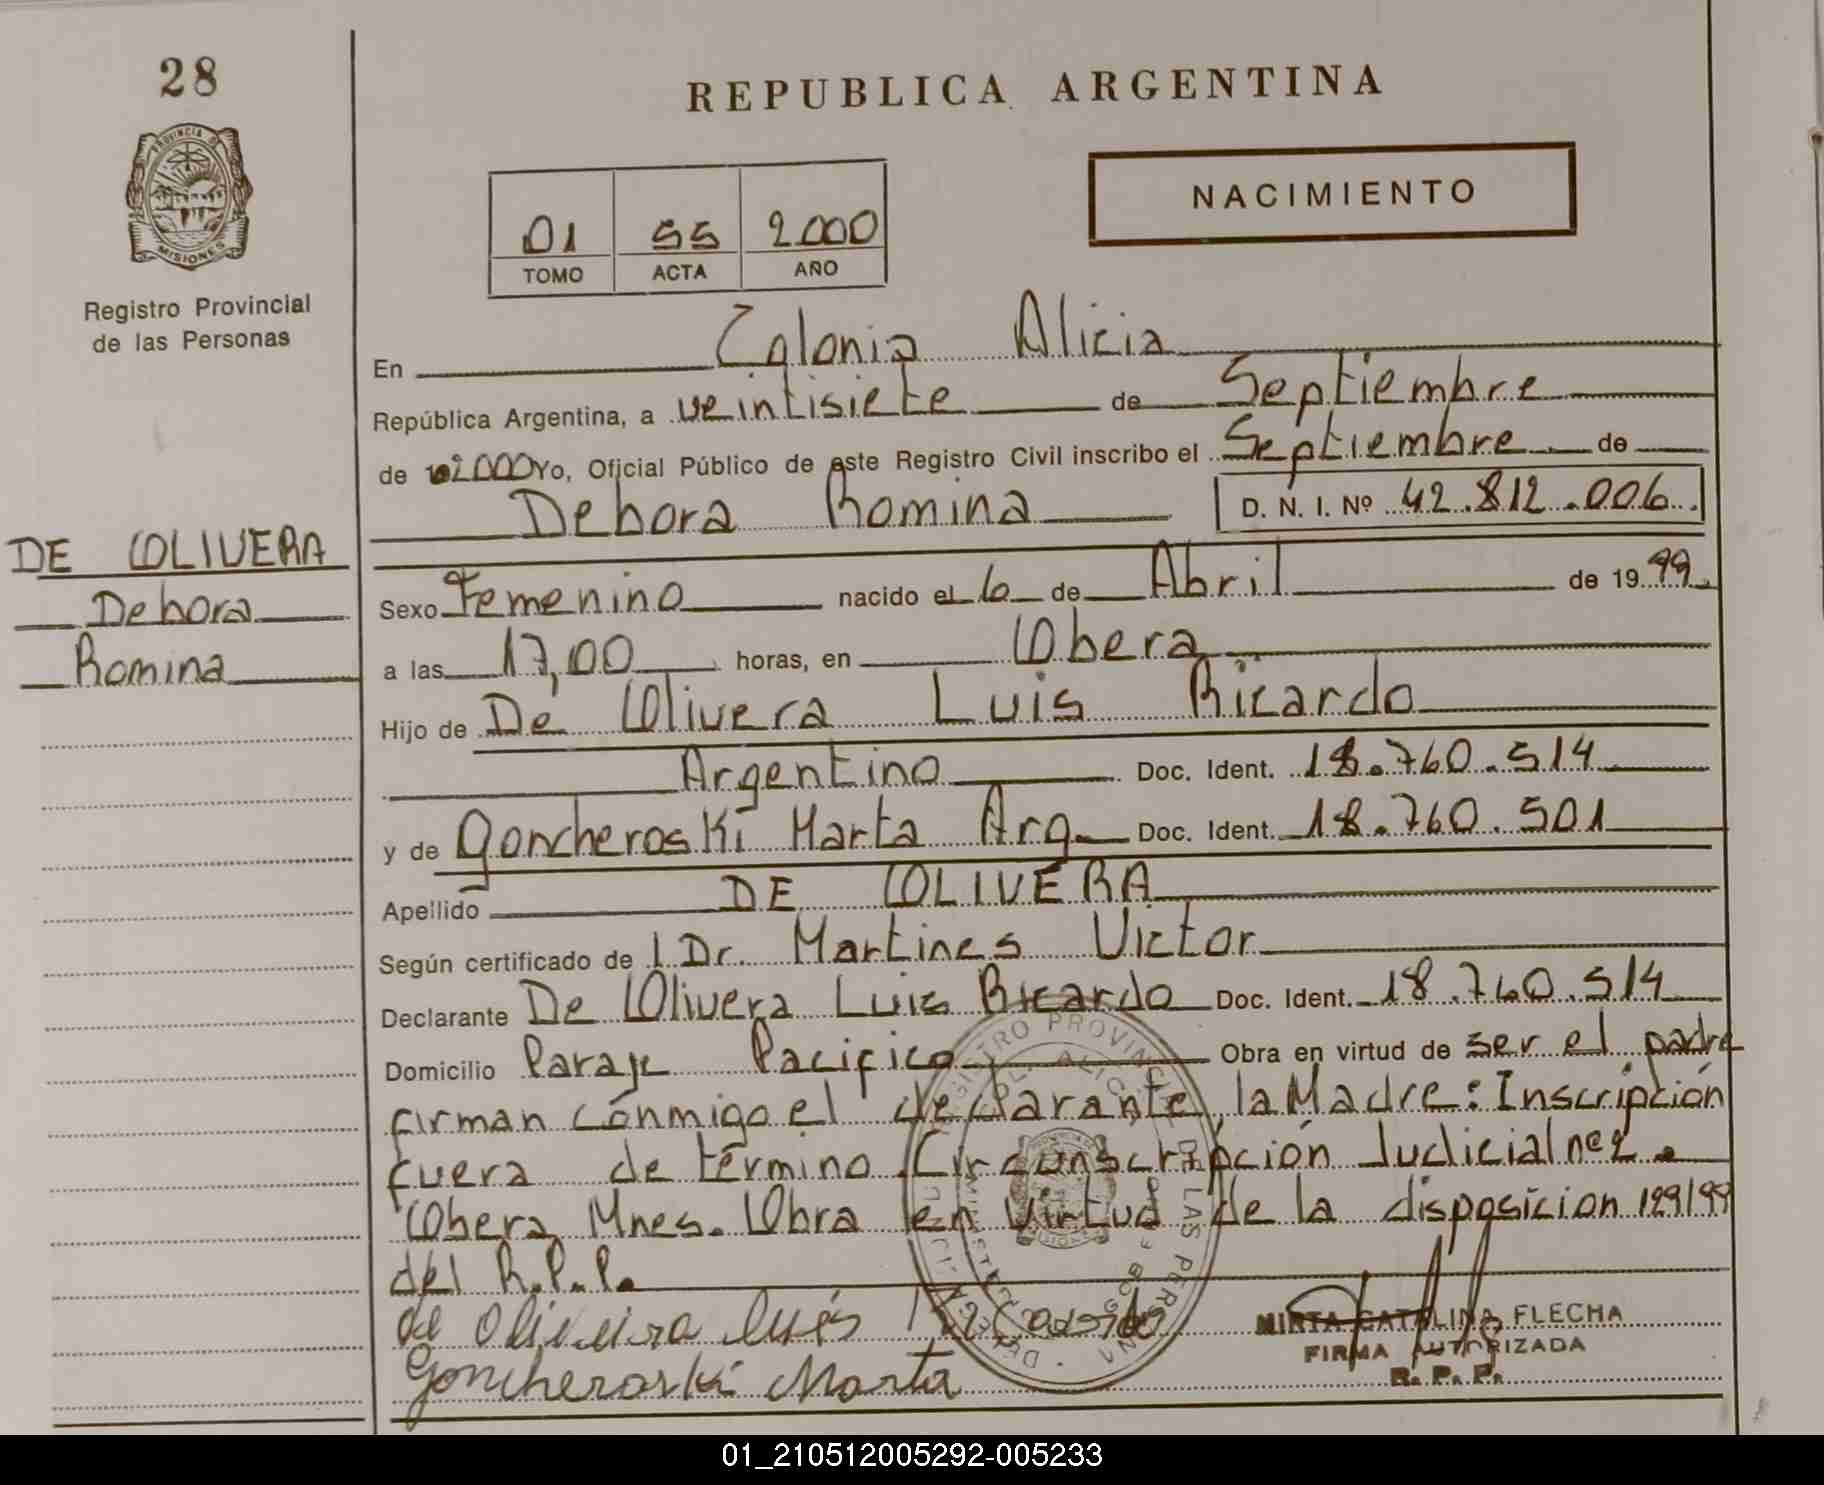 28
PROVINCIA DE
MISIONES
Registro Provincial
de las Personas
DE OLIVERA
Debora
Romina
REPUBLICA ARGENTINA
NACIMIENTO
01 55 2.000
TOMO ACTA AÑO
En Colonia Alicia
República Argentina, a veintisiete de Septiembre
de 2000 Yo, Oficial Público de este Registro Civil inscribo el Septiembre de
Debora Romina D. N. I. Nº 42.812.006.
Sexo Femenino nacido el 6 de Abril de 1999
a las 17,00 horas, en Obera
Hijo de De Olivera Luis Ricardo
Argentino Doc. Ident. 18.760.514
y de Goncheroski Marta Arg Doc. Ident. 18.760.501
Apellido DE OLIVERA
Según certificado de l Dr. Martines Victor
Declarante De Olivera Luis Ricardo Doc. Ident. 18.760.514
Domicilio Paraje Pacifico Obra en virtud de ser el padre
firman conmigo el declarante, la Madre: Inscripción
fuera de término Circunscripción Judicial nº2.
Obera Mnes. Obra en Virtud de la disposicion 129/99
del R.P.P.
de Oliveira Luis
MIRTA CATALINA FLECHA
FIRMA AUTORIZADA
R. P. P.
Goncheroski Marta
01_210512005292-005233